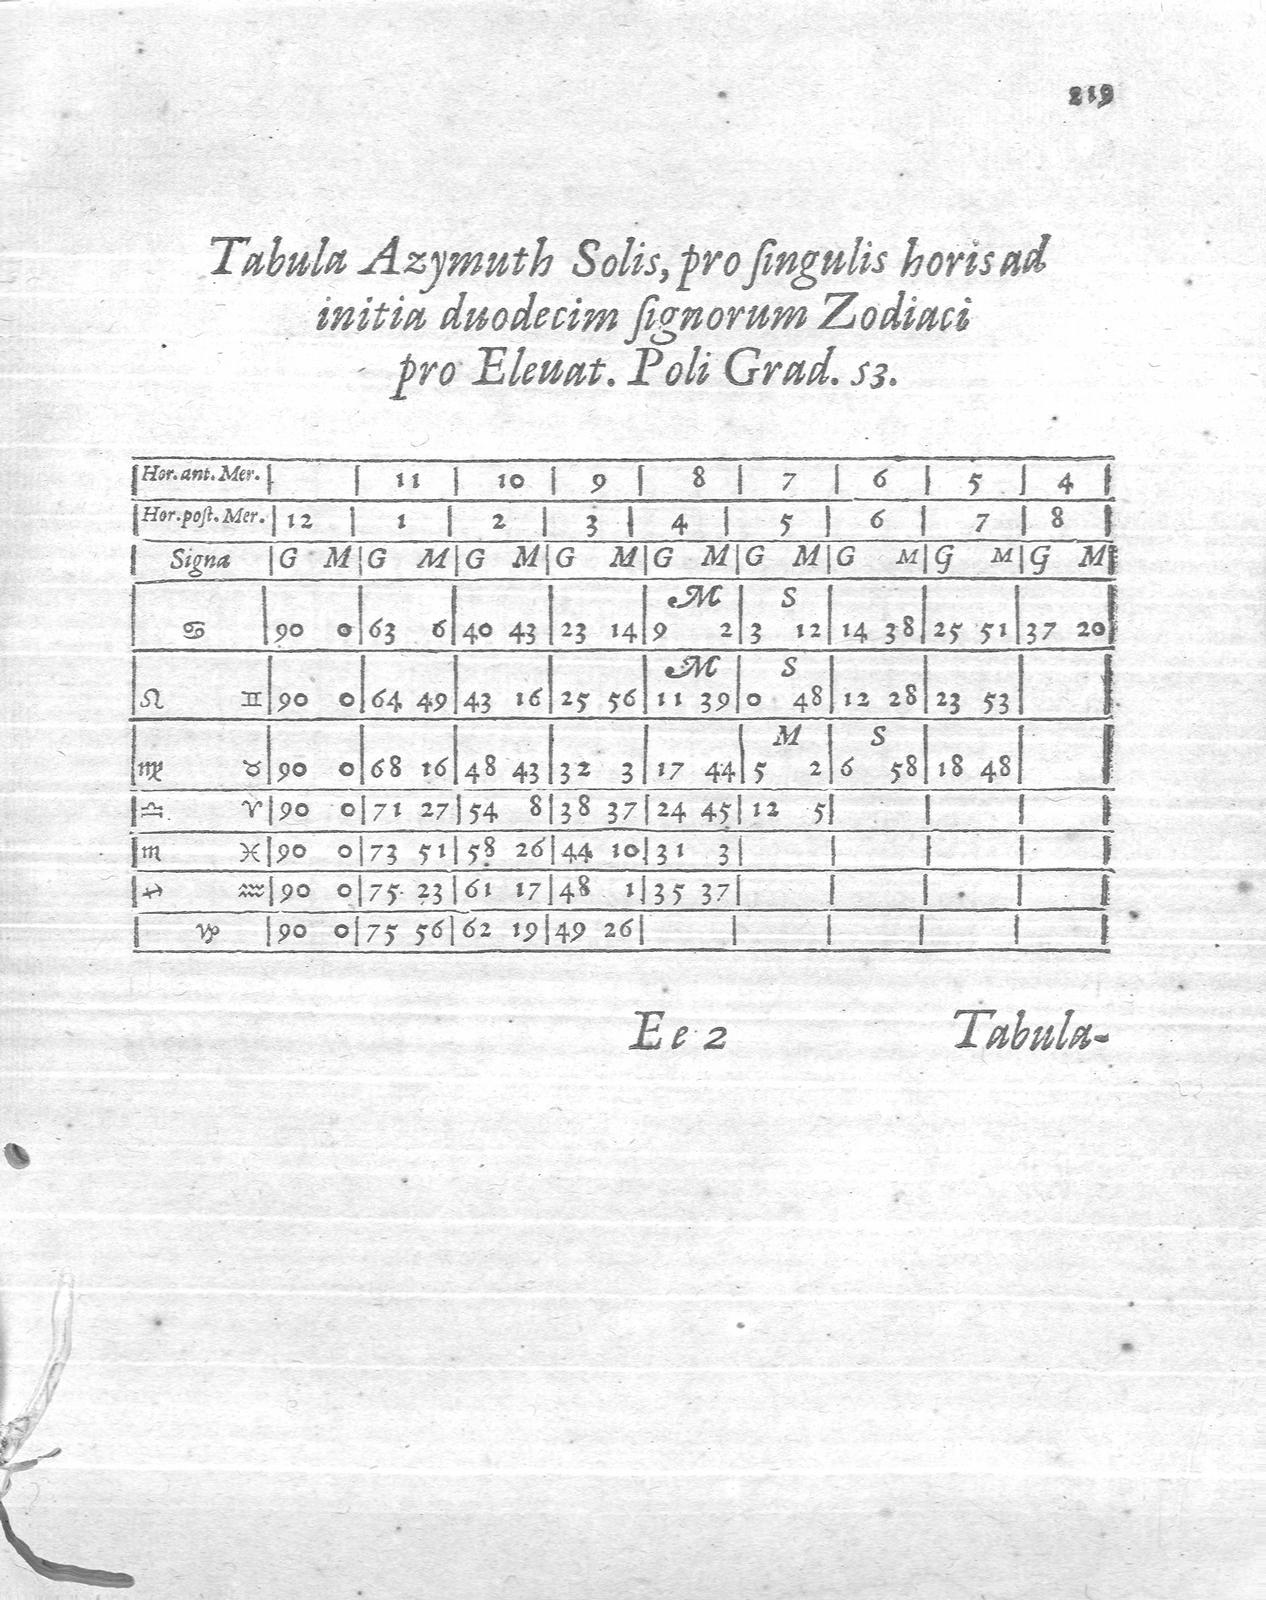 219
Tabula Azymuth Solis, pro ſingulis horis ad
initia duodecim ſignorum Zodiaci
pro Eleuat. Poli Grad. 53.
Hor. ant. Mer. | | 11 | 10 | 9 | 8 | 7 | 6 | 5 | 4
Hor. poſt. Mer. | 12 | 1 | 2 | 3 | 4 | 5 | 6 | 7 | 8
Signa | G M | G M | G M | G M | G M | G M | G M | G M | G M
M S
♋ | 90 0 | 63 6 | 40 43 | 23 14 | 9 2 | 3 12 | 14 38 | 25 51 | 37 20
M S
♌ ♊ | 90 0 | 64 49 | 43 16 | 25 56 | 11 39 | 0 48 | 12 28 | 23 53
M S
♍ ♉ | 90 0 | 68 16 | 48 43 | 32 3 | 17 44 | 5 2 | 6 58 | 18 48
♎ ♈ | 90 0 | 71 27 | 54 8 | 38 37 | 24 45 | 12 5
♏ ♓ | 90 0 | 73 51 | 58 26 | 44 10 | 31 3
♐ ♒ | 90 0 | 75 23 | 61 17 | 48 1 | 35 37
♑ | 90 0 | 75 56 | 62 19 | 49 26
Ee 2 Tabula-